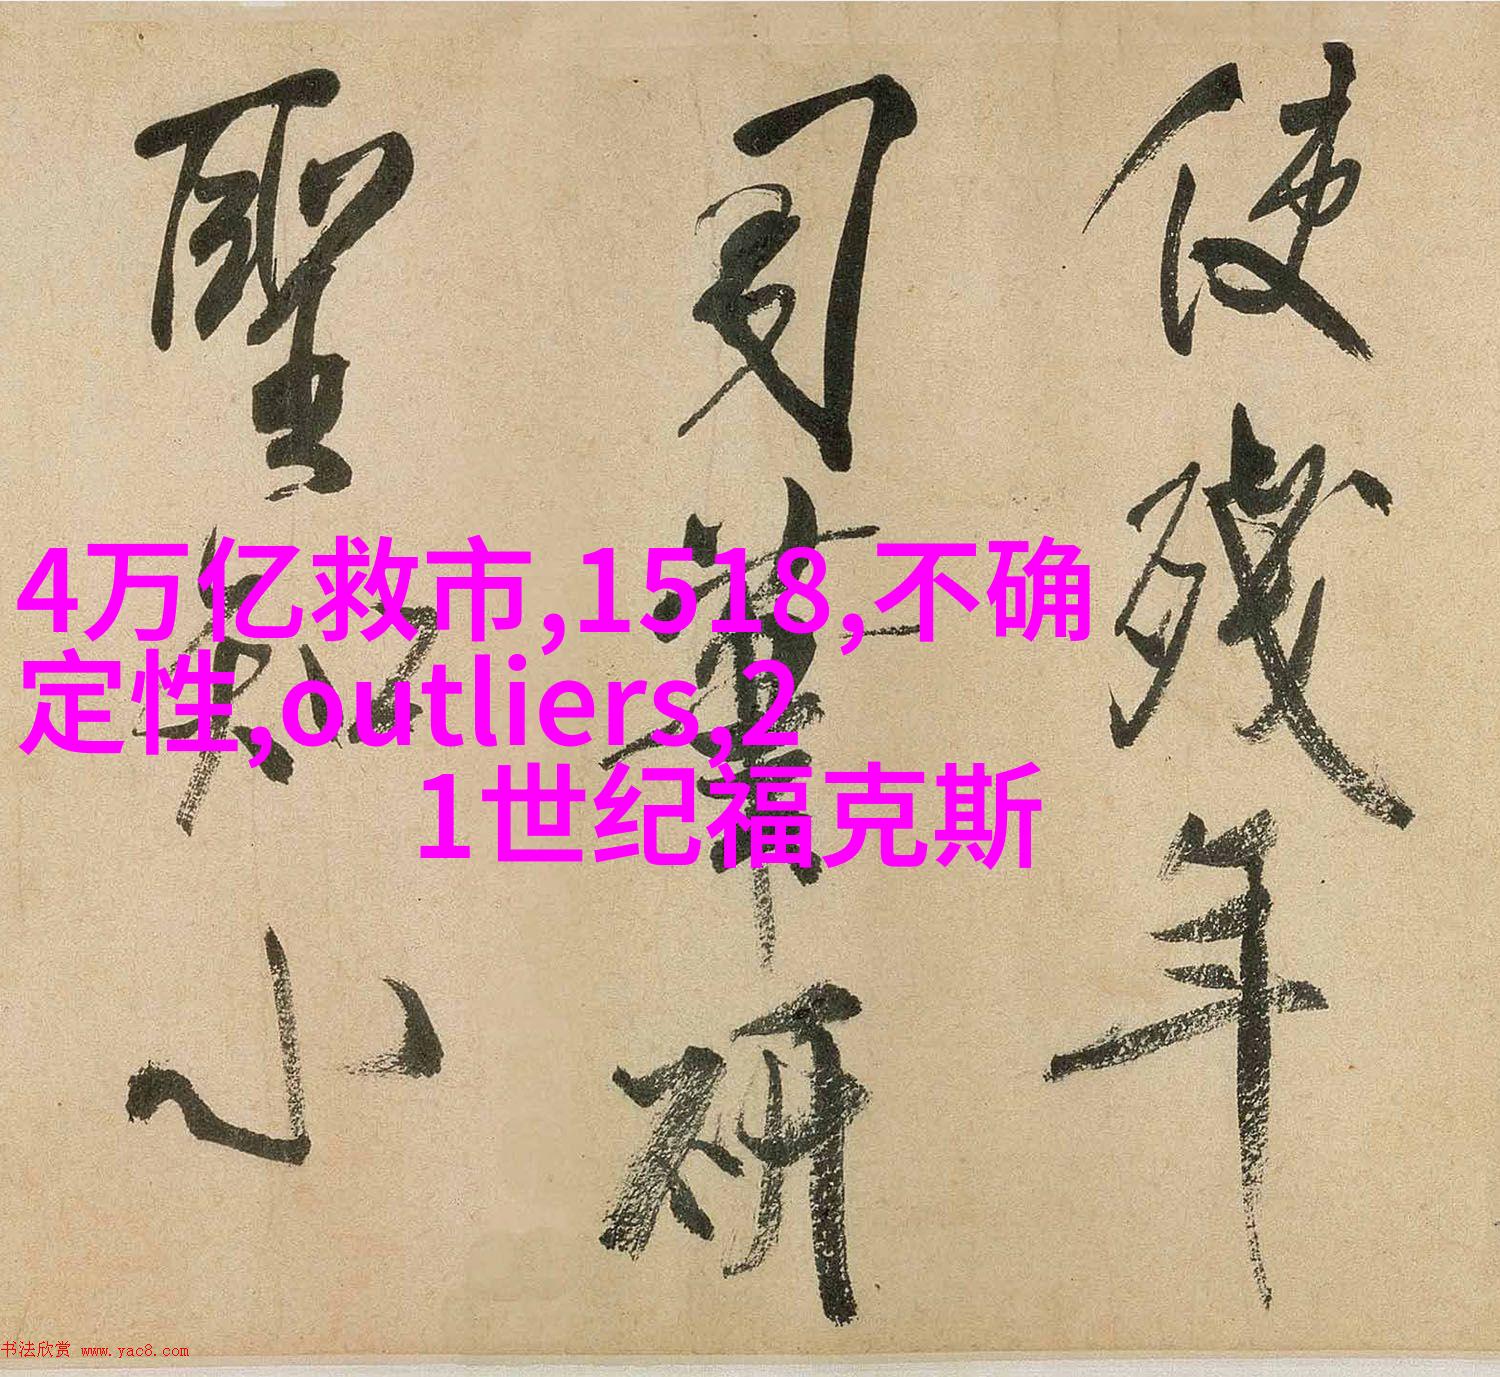 使殘年
司筆研
聖知小
4万亿救市,1518,不确
定性,outliers,2
1世纪福克斯
书法欣赏 www.yac8.com